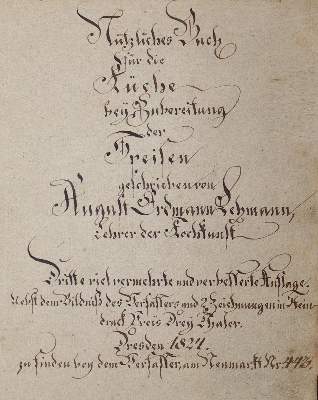 Nützliches Buch
für die
Küche
bey Zubereitung
der
Speisen
geschrieben von
August Erdmann Lehmann,
Lehrer der Kochkunst
Dritte viel vermehrte und verbesserte Auflage.
Nebst dem Bildniß des Verfassers und 2 Zeichnungen in Stein
druck Preis Drey Thaler.
Dresden 1821.
zu finden bey dem Verfasser, am Neumarkt Nr. 443.